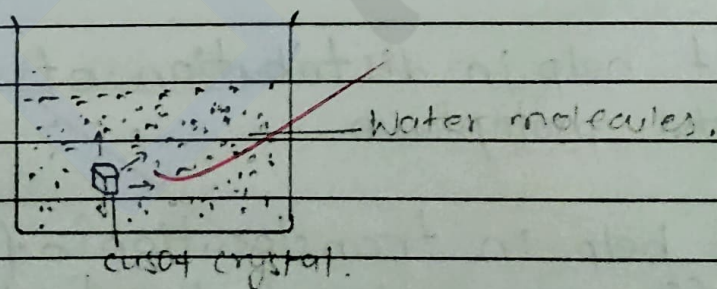 Water molecules.
cuso4 crystal.